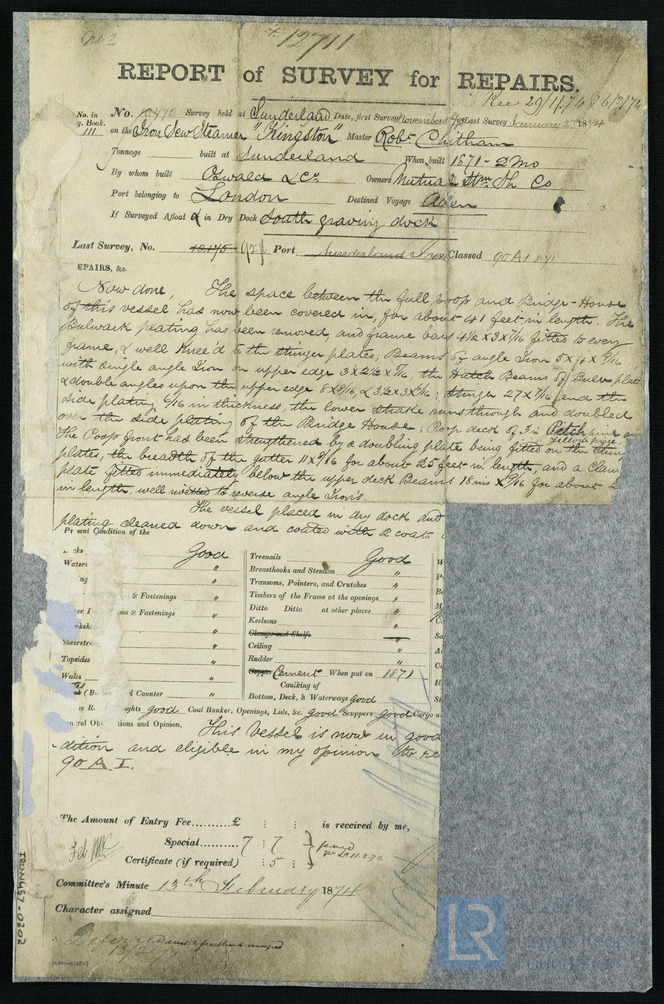 12711
REPORT of SURVEY for REPAIRS.
Rec 29/1/74 & 6/2/74
No. in No. 10470 Survey held at Sunderland Date, first Survey November Last Survey 1874
g. Book.
111 on the Iron Screw Steamer "Kingston" Master Robt Chitham
Tonnage built at Sunderland When built 1871 - 2 mo
By whom built Oswald & Co Owners Mutual Stm Sh Co
Port belonging to London Destined Voyage Aden
If Surveyed Afloat or in Dry Dock South graving dock
Last Survey, No. Port Sunderland Classed 90A1
EPAIRS, &c.
Now done, The space between the full poop and Bridge-House
of this vessel has now been covered in, for about 41 feet in length. The
Bulwark plating has been removed, and frame bars 4½ x 3 x 7/16 fitted to every
frame, & well knee'd to the stringer plates, Beams of angle Iron 5 x 4 x 9/16
with single angle Iron on upper edge 3 x 2½ x 7/16, the Hatch Beams of Bulb plate
& double angles upon the upper edge 8 x 8/16 & 3½ x 3 x 6/16; stringer 27 x 7/16 and the
side plating 6/16 in thickness, the lower strake runs through and doubled
over the side plating of the Bridge House; Poop deck of 3½ Pitch pine an
yellow pine
The Poop front has been strengthened by a doubling plate being fitted on the string
plates, the breadth of the gutter 11 x 9/16 for about 25 feet in length, and a Clam
plate fitted immediately below the upper deck Beams 18 ins x 9/16 for about 2
in length, well riveted to reverse angle Irons.
The vessel placed in dry dock and
plating cleaned down and coated with 2 coats
Present Condition of the
cks Good Treenails Good
Waterw " Breasthooks and Stemson "
ng " Transoms, Pointers, and Crutches "
& Fastenings " Timbers of the Frame at the openings "
per & Fastenings " Ditto Ditto at other places "
" Keelsons "
Clamps and Shelfs
Sheerstra " Ceiling "
Topsides " Rudder "
Wales " Copper Cement When put on 1871
Counter " Caulking of
Bottom, Deck, & Waterways Good
ghts good Coal Bunker, Openings, Lids, &c. Good Scuppers Good Cargo
eneral Observations and Opinion. This Vessel is now in good
dition and eligible in my opinion to re
90 A I.
The Amount of Entry Fee £ : : is received by me,
Special 7 : 7 :
Certificate (if required) : 5 :
Committee's Minute 13th February 1874
Character assigned
Deferred
IRON457-0202
LR